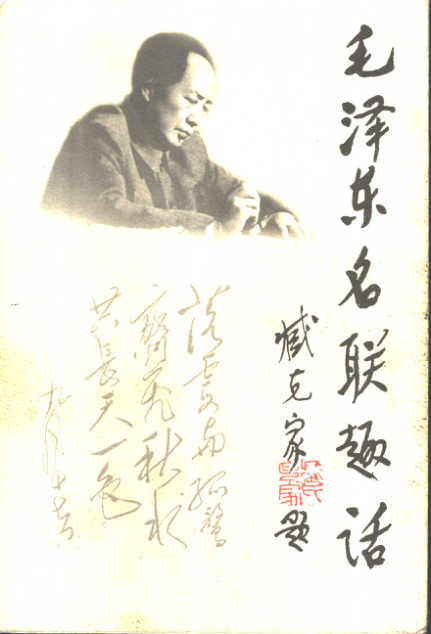 毛泽东名联趣话
臧克家
题
落霞与孤鹜
齊飛秋水
共長天一色